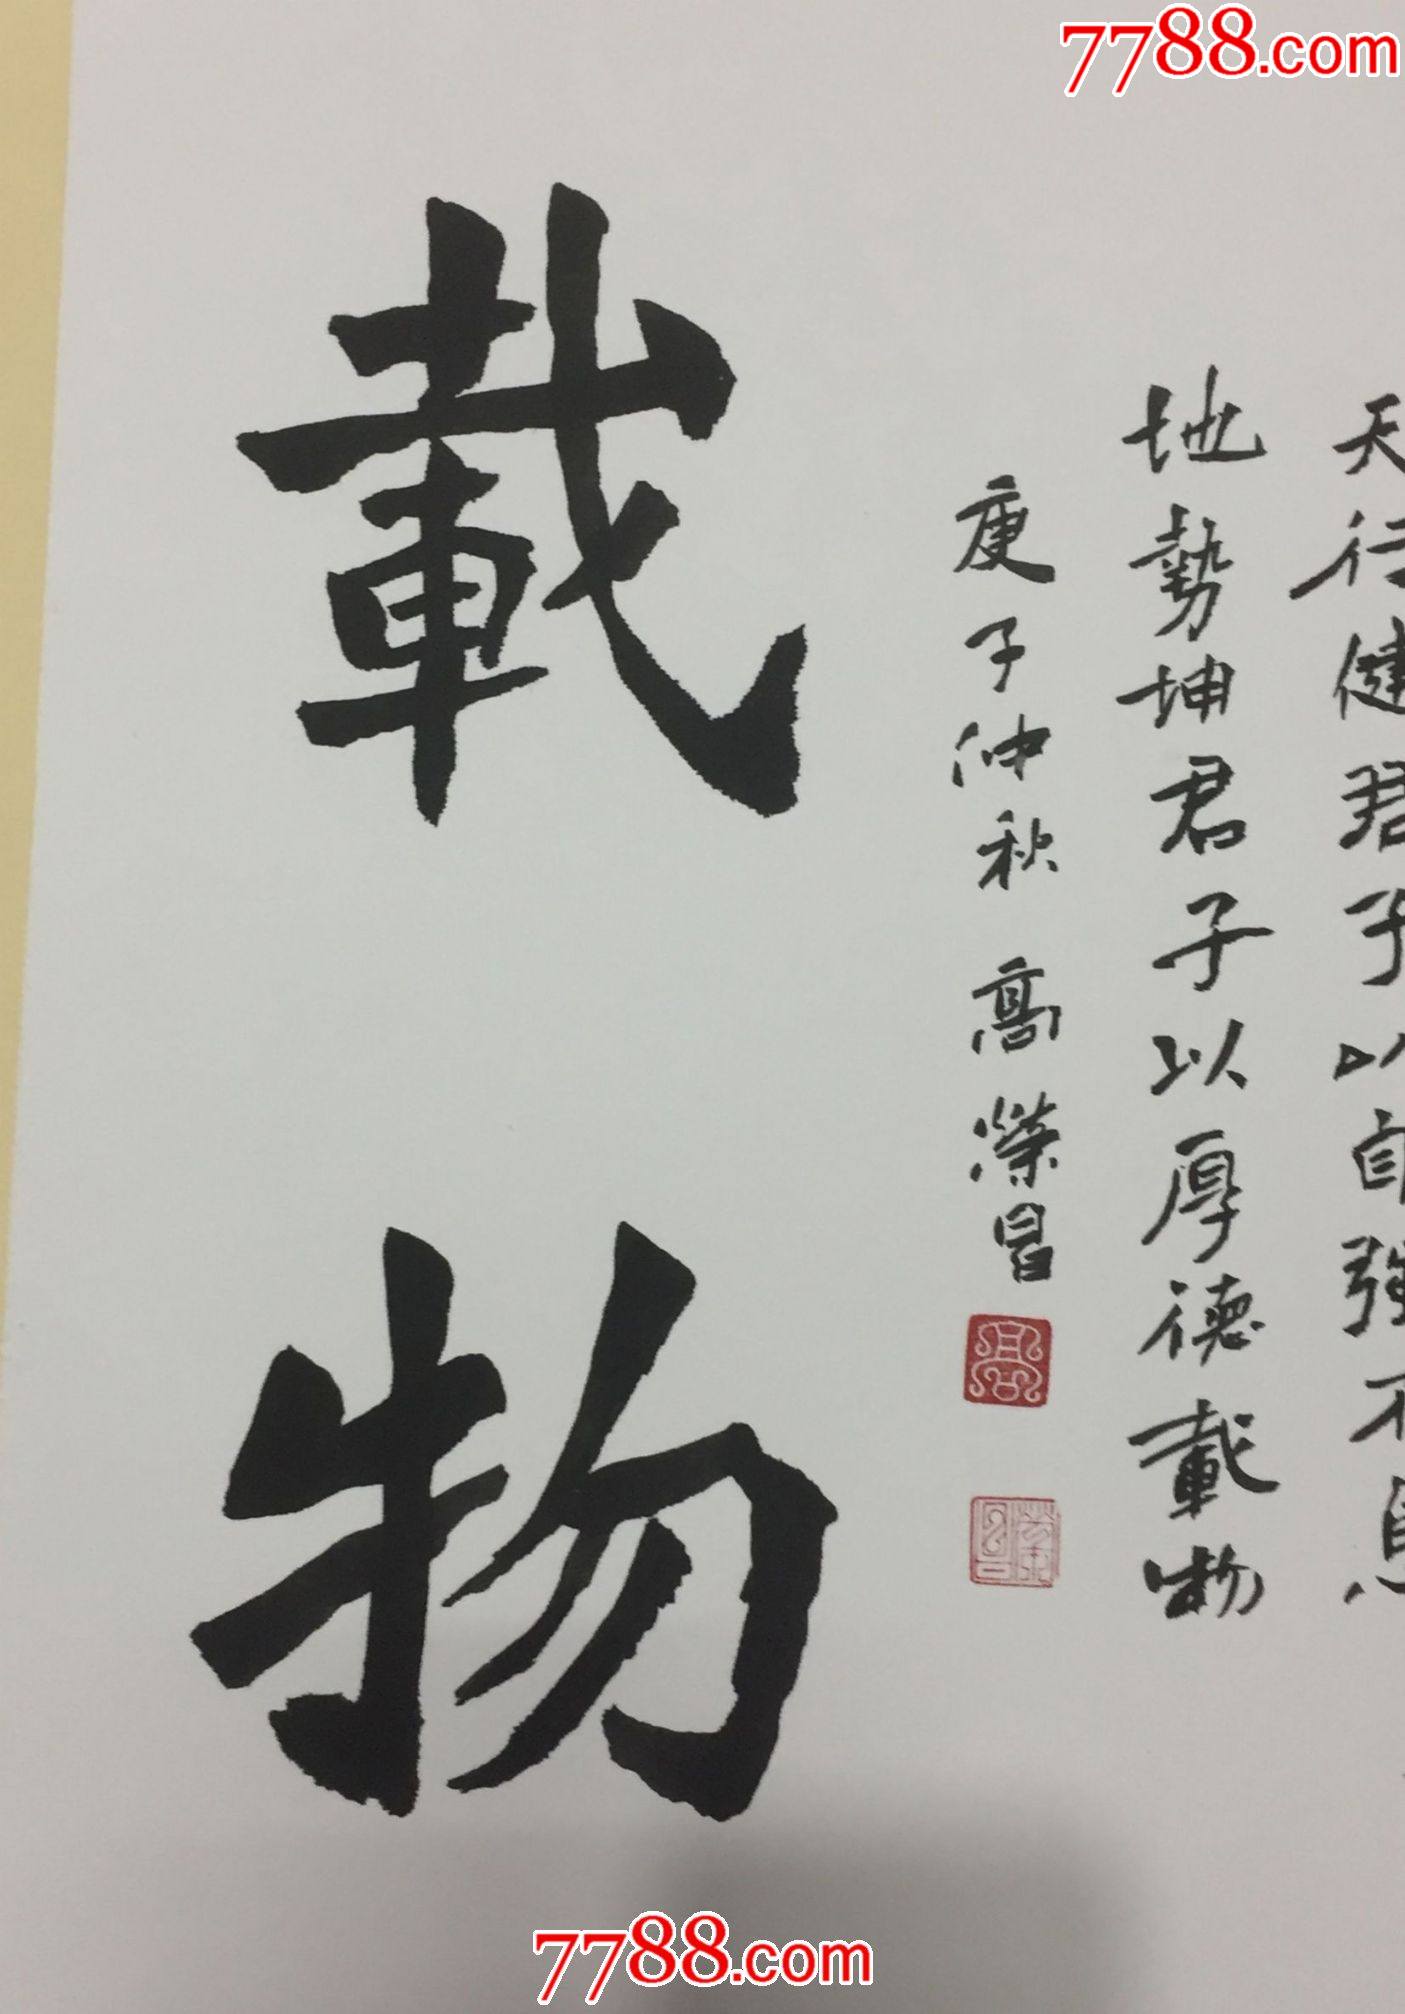 7788.com
天行健君子以自強不息
地勢坤君子以厚德載物
庚子仲秋 高榮昌
載物
高
榮昌
7788.com